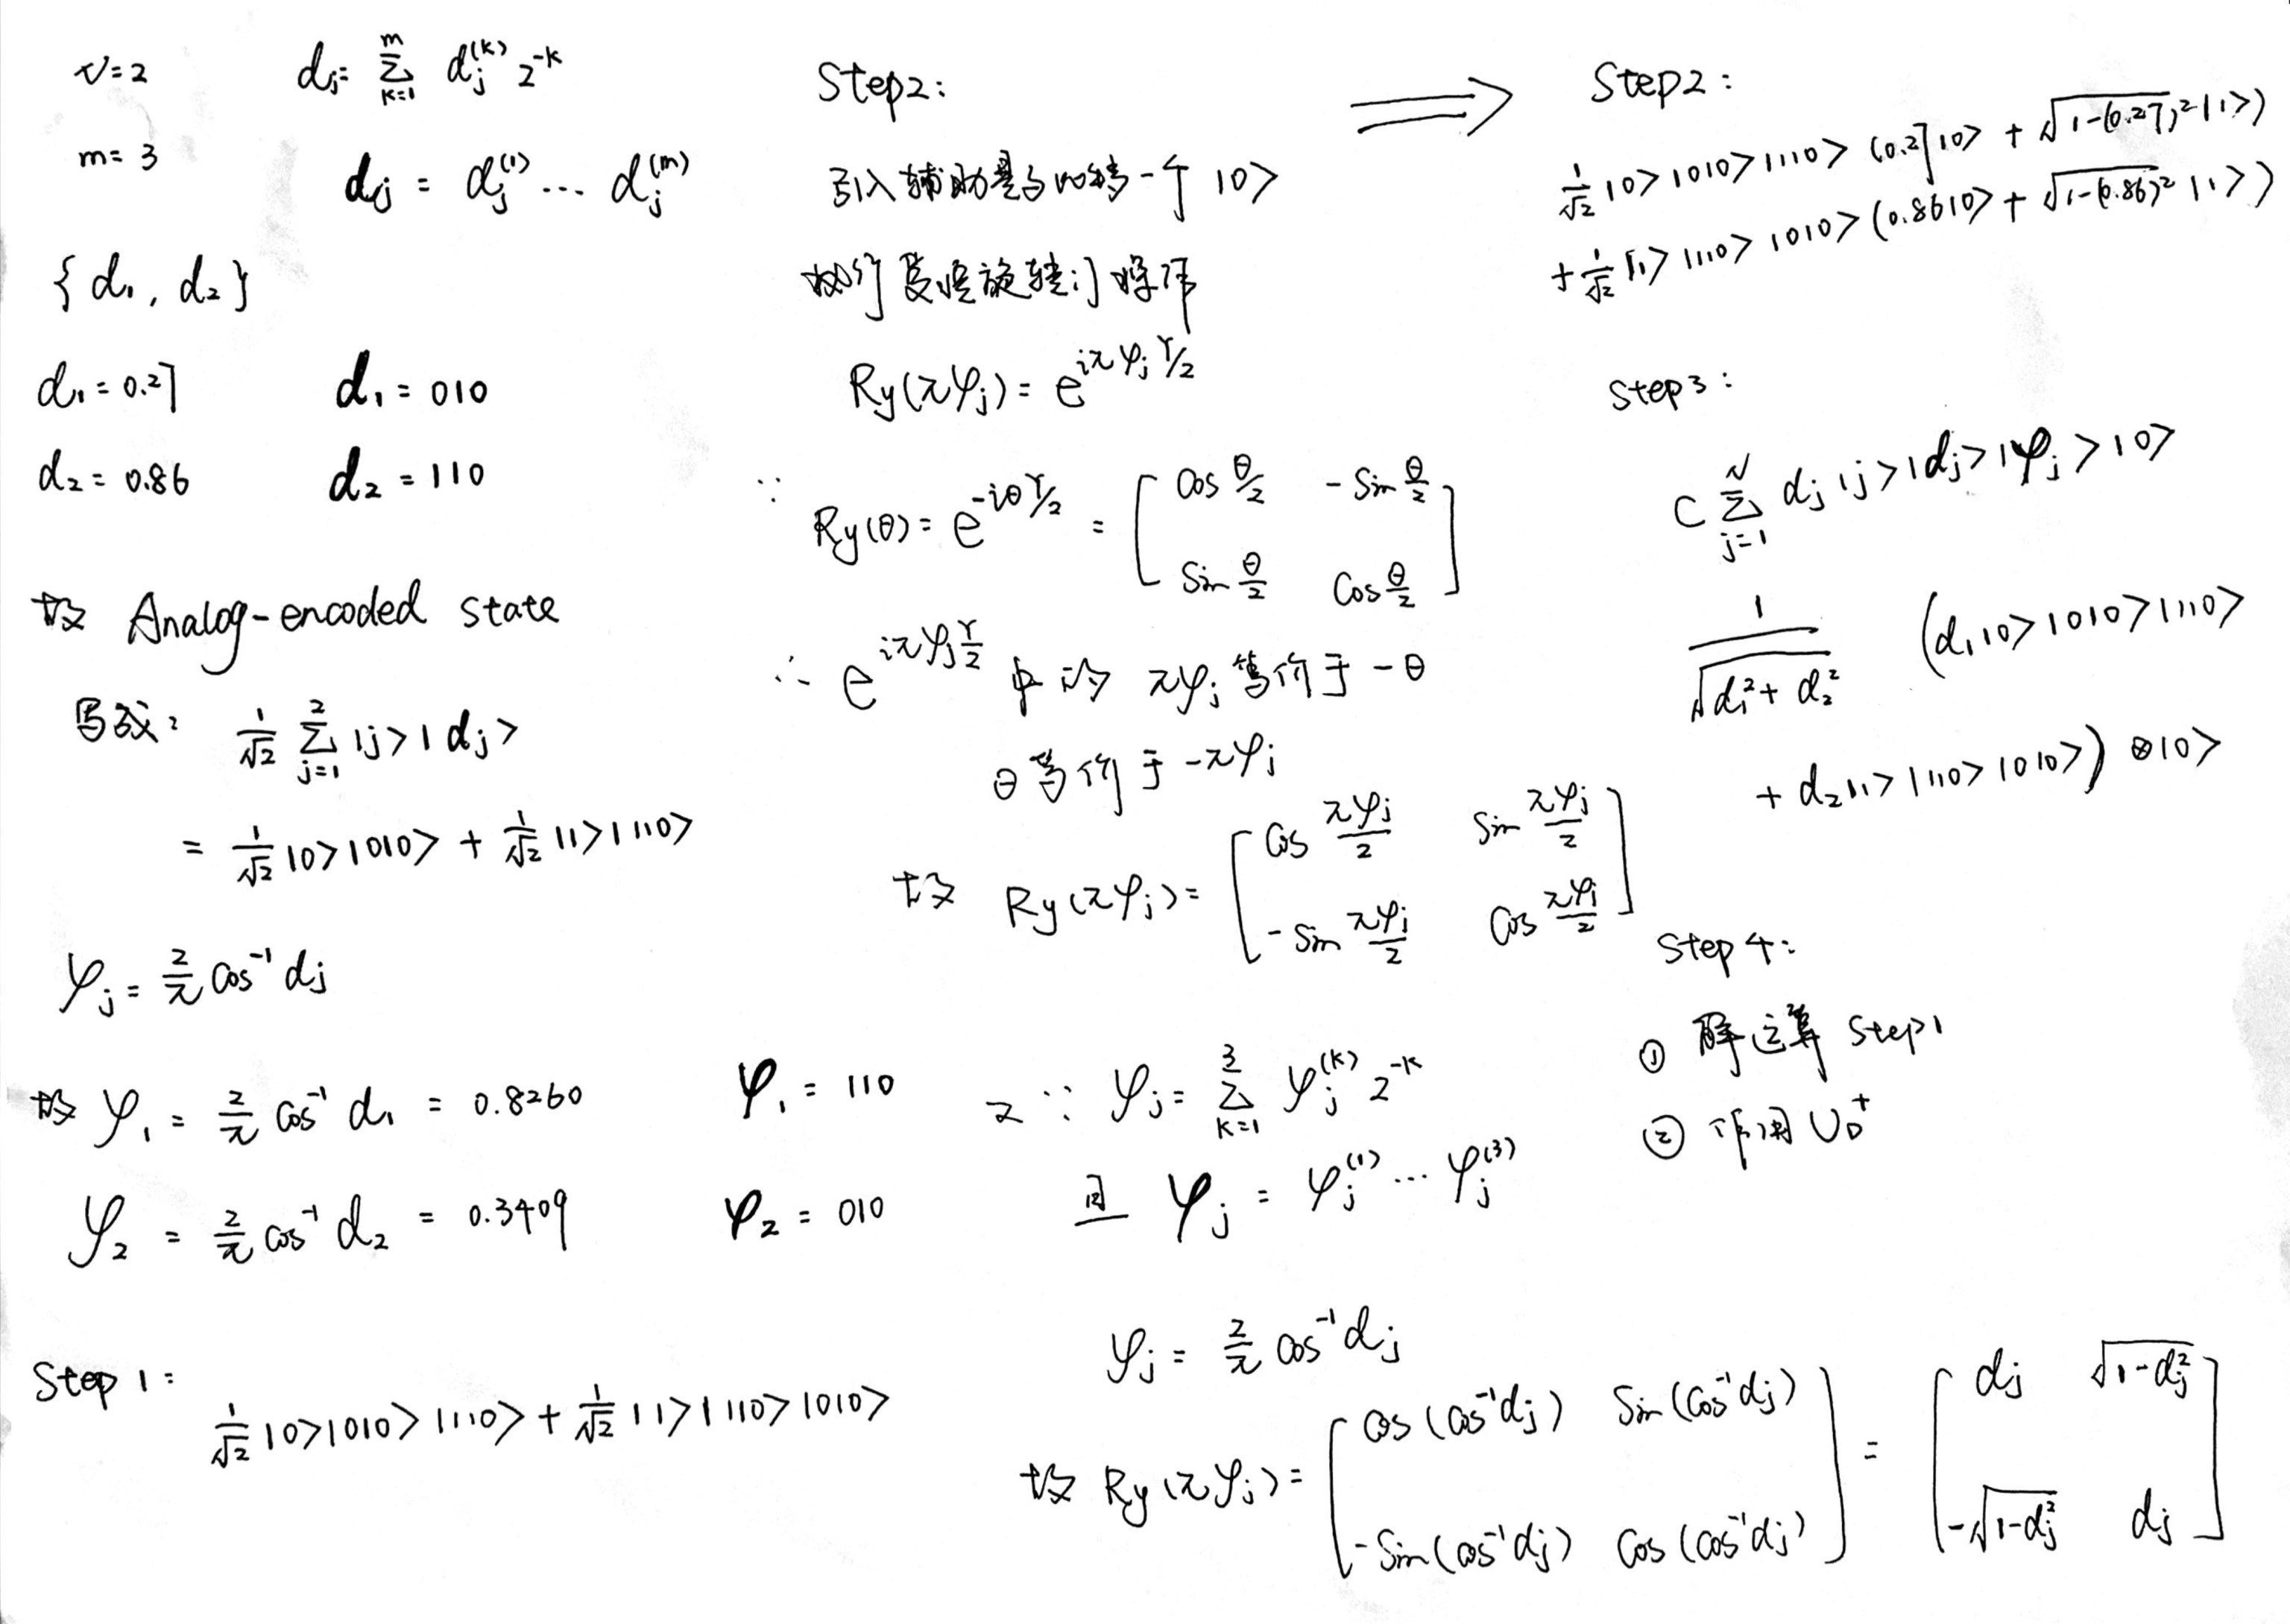 N=2
m=3
dj = Σ_{k=1}^{m} dj^{(k)} 2^{-k}
dj = dj^{(1)} ... dj^{(m)}
{d₁, d₂}
d₁=0.27 d₁=010
d₂=0.86 d₂=110
故 Analog-encoded state
写成: 1/√2 Σ_{j=1}^{2} |j>|dj>
= 1/√2 |0>|010> + 1/√2 |1>|110>
φj = 2/π cos⁻¹ dj
故 φ₁ = 2/π cos⁻¹ d₁ = 0.8260 φ₁ = 110
φ₂ = 2/π cos⁻¹ d₂ = 0.3409 φ₂ = 010
Step 1:
1/√2 |0>|010>|110> + 1/√2 |1>|110>|010>
Step2:
引入辅助量子比特一个 |0>
执行受控旋转门操作
Ry(πφj) = e^{iπφj Y/2}
∵ Ry(θ) = e^{-iθY/2} = [cos θ/2 -sin θ/2
sin θ/2 cos θ/2]
∴ e^{iπφj Y/2} 中的 πφj 等价于 -θ
θ等价于 -πφj
故 Ry(πφj) = [cos πφj/2 sin πφj/2
-sin πφj/2 cos πφj/2]
又∵ φj = Σ_{k=1}^{3} φj^{(k)} 2^{-k}
且 φj = φj^{(1)} ... φj^{(3)}
φj = 2/π cos⁻¹ dj
故 Ry(πφj) = [cos(cos⁻¹dj) sin(cos⁻¹dj)
-sin(cos⁻¹dj) cos(cos⁻¹dj)] = [dj √(1-dj²)
-√(1-dj²) dj]
⟹ Step2:
1/√2 |0>|010>|110> (0.27|0> + √(1-(0.27)²)|1>)
+ 1/√2 |1>|110>|010> (0.86|0> + √(1-(0.86)²)|1>)
Step3:
C Σ_{j=1}^{N} dj |j>|dj>|φj>|0>
1/√(d₁²+d₂²) (d₁|0>|010>|110>
+ d₂|1>|110>|010>) ⊗|0>
Step 4:
① 解运算 Step1
② 作用 U_D^†